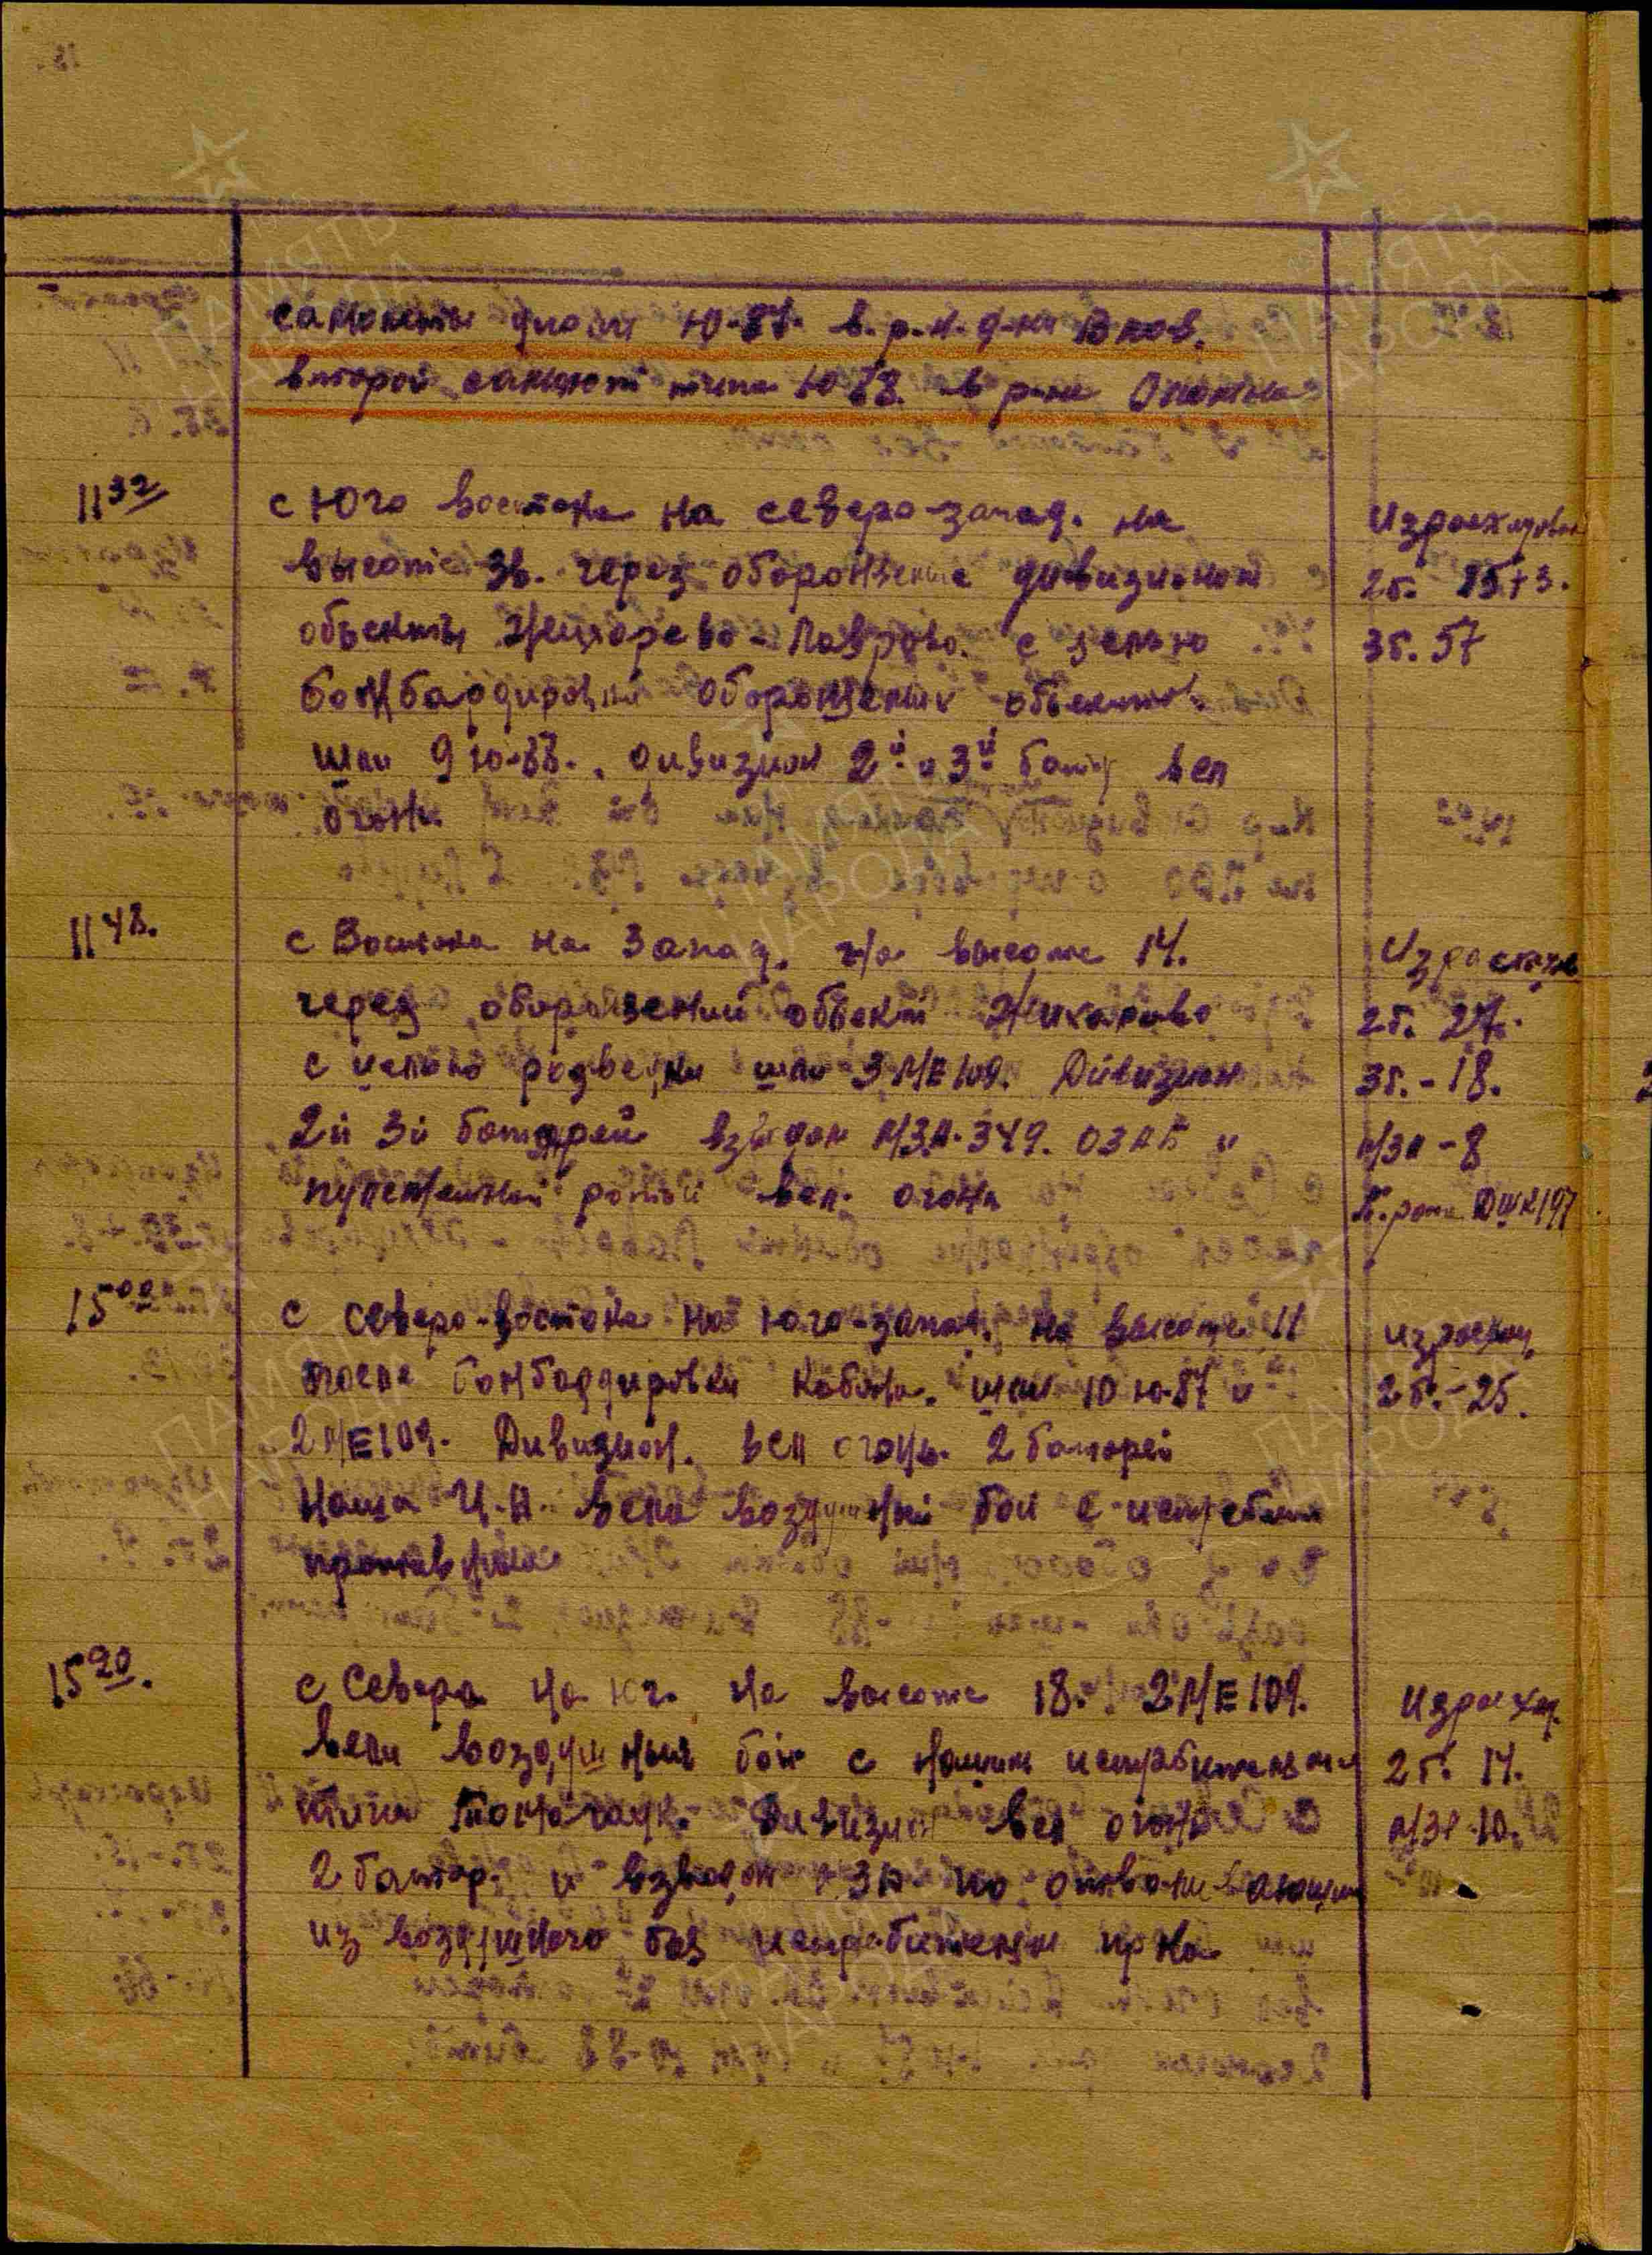 самолеты упали Ю-87. в. р-н. д-ни
второй самолет типа Ю 88. в р-не
11 32
с Юго востока на северо-запад. на
высоте 38. через оборонзение дивизионом
объекты Жихарево - Лаврово. с целью
бомбардировки оборонзеных объектов
шли 9 Ю-88. дивизион 2й и 3й батар вел
огонь.
Израсходован
2б.
3б. 57
11 48.
с Востока на Запад. на высоте 14.
через оборонзений объект Жихарево
с целью розведки шли 3 МЕ 109. Дивизион
2й 3й батарей взводом МЗА. 349. ОЗАД и
пулеметной ротой вел. огонь
Израсход
2б. 27.
3б. - 18.
МЗА - 8
П. рота ДШК 197
15 00
с северо-востока на юго-запад. на высоте 11
после бомбардировки Кобона. шли 10 Ю-87 и
2 МЕ 109. Дивизион. вел огонь. 2 батарей
Наша И.А. вела воздушный бой с истребит
противника
израсход.
2б. - 25.
15 20.
с Севера на юг. на высоте 18. 2 МЕ 109.
вели воздушный бой с нашими истребителями
типа Томагаук. Дивизион вел огонь
2 батар. и взводом МЗА по отваливающим
из воздушного боя истребителям пр-ка
Израсход.
2б. 14.
МЗА - 10.